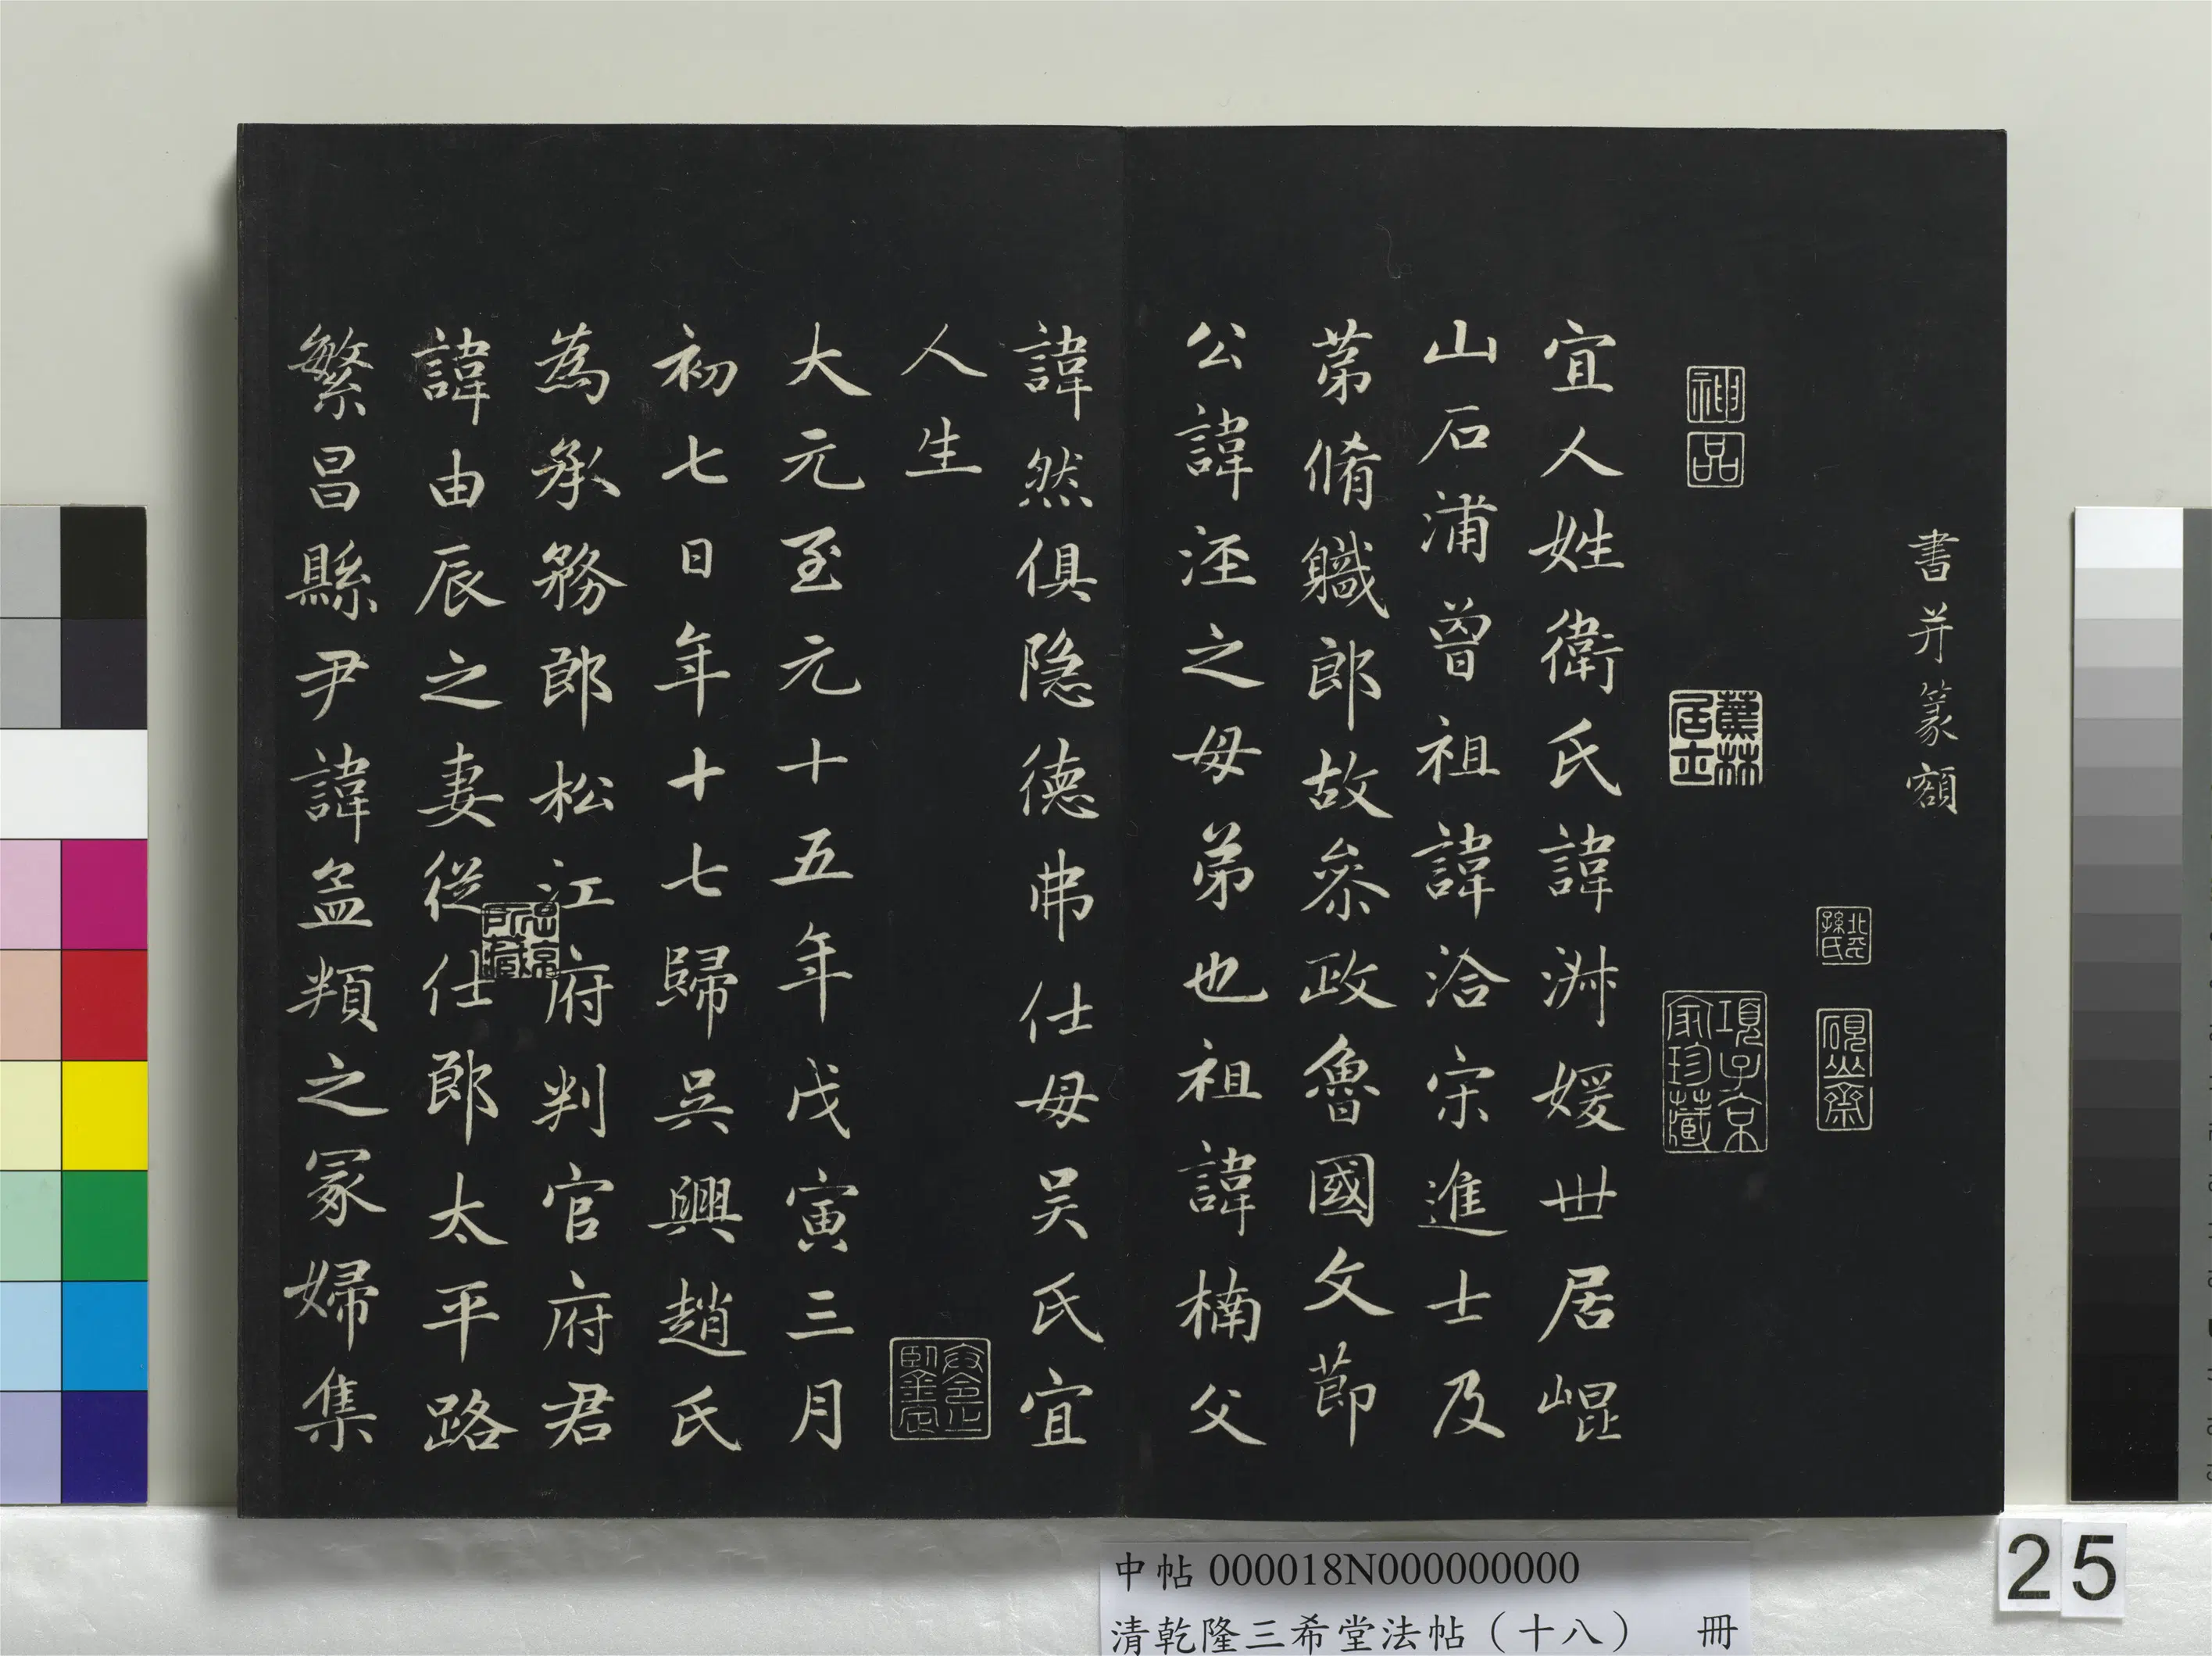 書并篆額
北平孫氏
硯山齋
神品
蕉林居士
項子京家珍藏
宜人姓衛氏諱淑媛世居崐
山石浦曾祖諱洽宋進士及
第脩職郎故叅政魯國文節
公諱涇之母弟也祖諱楠父
諱然俱隐德弗仕母吴氏宜
人生
大元至元十五年戊寅三月
初七日年十七歸吳興趙氏
為承務郎松江府判官府君
諱由辰之妻從仕郎太平路
繁昌縣尹諱孟頖之冢婦集
中帖 000018N000000000
清乾隆三希堂法帖（十八） 冊
25